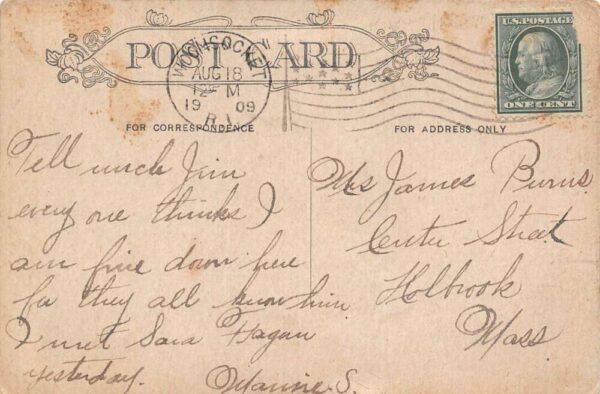 POST CARD
WOONSOCKET
AUG 18
12 M
19 09
R.I.
U.S. POSTAGE
ONE CENT
FOR CORRESPONDENCE
FOR ADDRESS ONLY
Tell uncle Jim
every one thinks I
am fine down here
for they all know him
I met Sara Fagan
yesterday.
S.
Mrs James Burns
Center Street
Holbrook
Mass